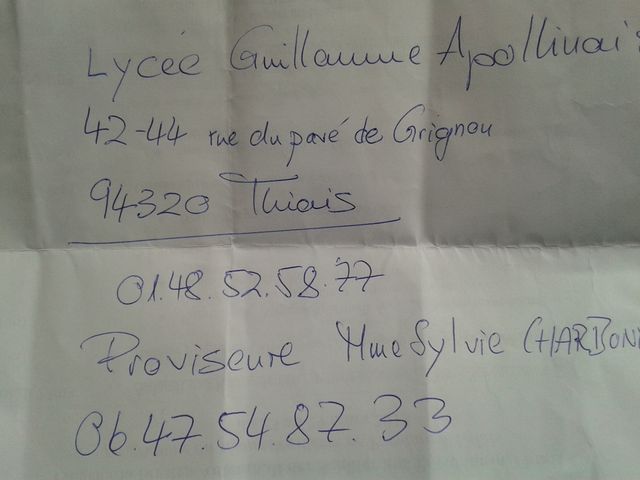 Lycée Guillaume Apollinai
42-44 rue du pavé de Grignon
94320 Thiais
01.48.52.58.77
Proviseure Mme Sylvie CHARBONI
06.47.54.87.33